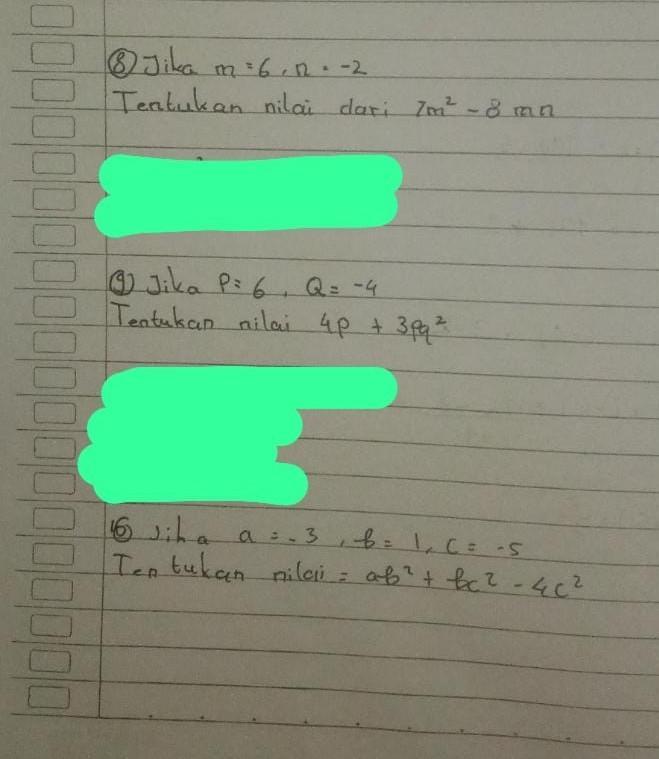 ⑧ Jika m = 6, n = -2
Tentukan nilai dari 7m² - 8 mn
⑨ Jika P = 6, Q = -4
Tentukan nilai 4p + 3pq²
⑯ Jika a = -3, b = 1, c = -5
Tentukan nilai = ab² + bc² - 4c²